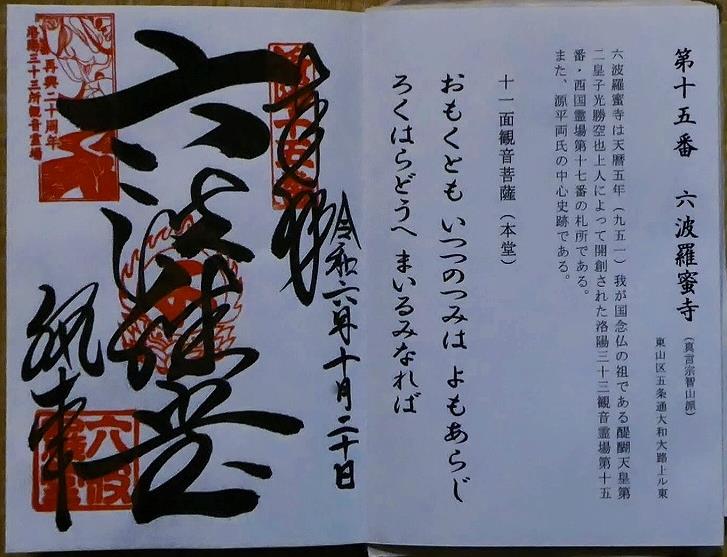 第十五番 六波羅蜜寺
(真言宗智山派)
東山区五条通大和大路上ル東
六波羅蜜寺は天暦五年(九五一)我が国念仏の祖である醍醐天皇第
二皇子光勝空也上人によって開創された洛陽三十三観音霊場第十五
番・西国霊場第十七番の札所である。
また、源平両氏の中心史跡である。
十一面観音菩薩(本堂)
おもくとも いつつのつみは よもあらじ
ろくはらどうへ まいるみなれば
令和六年十月二十日
奉拝
六波羅堂
再興二十周年
洛陽三十三所観音霊場